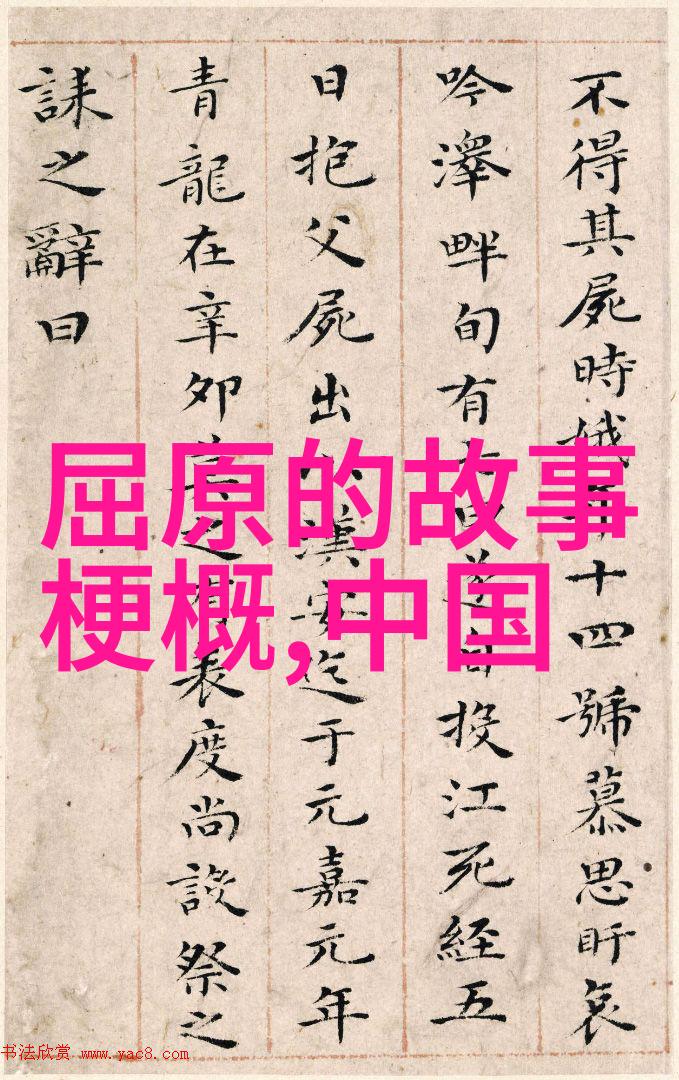 不得其屍時娥年十四號慕思盱哀
吟澤畔旬有七日遂自投江死經五
日抱父屍出以漢安迄于元嘉元年
青龍在辛卯莫之有表度尚設祭之
誄之辭曰
屈原的故事
梗概,中国
书法欣赏 www.yac8.com